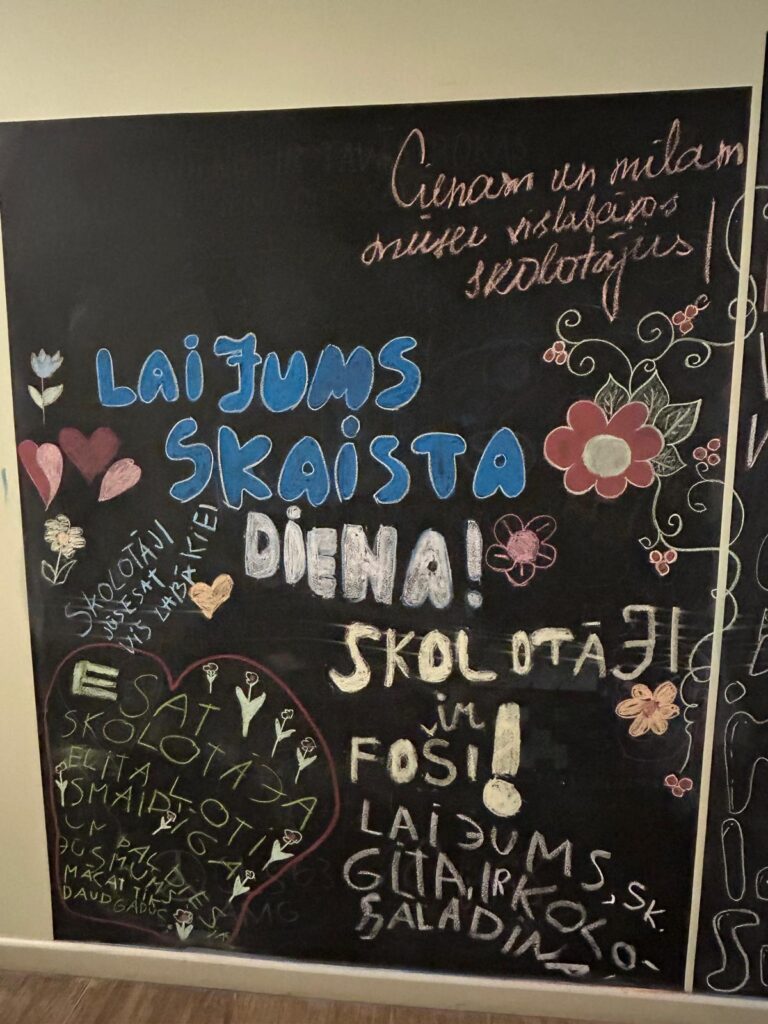 Cienam un mīlam
mūsu vislabākos
skolotājus!
LAI JUMS
SKAISTA
DIENA!
SKOLOTĀJI
JŪS ESAT
VIS LABĀKIE!
SKOLOTĀJI
ir
FOŠI!
ESAT
SKOLOTĀJA
ELĪTA ĻOTI
SMAIDĪGA
UN PAL
JUS MUMS
MĀCAT TIK
DAUDG GADUS
LAI JUMS, SK.
GITA, IR KOKO
SALADIN